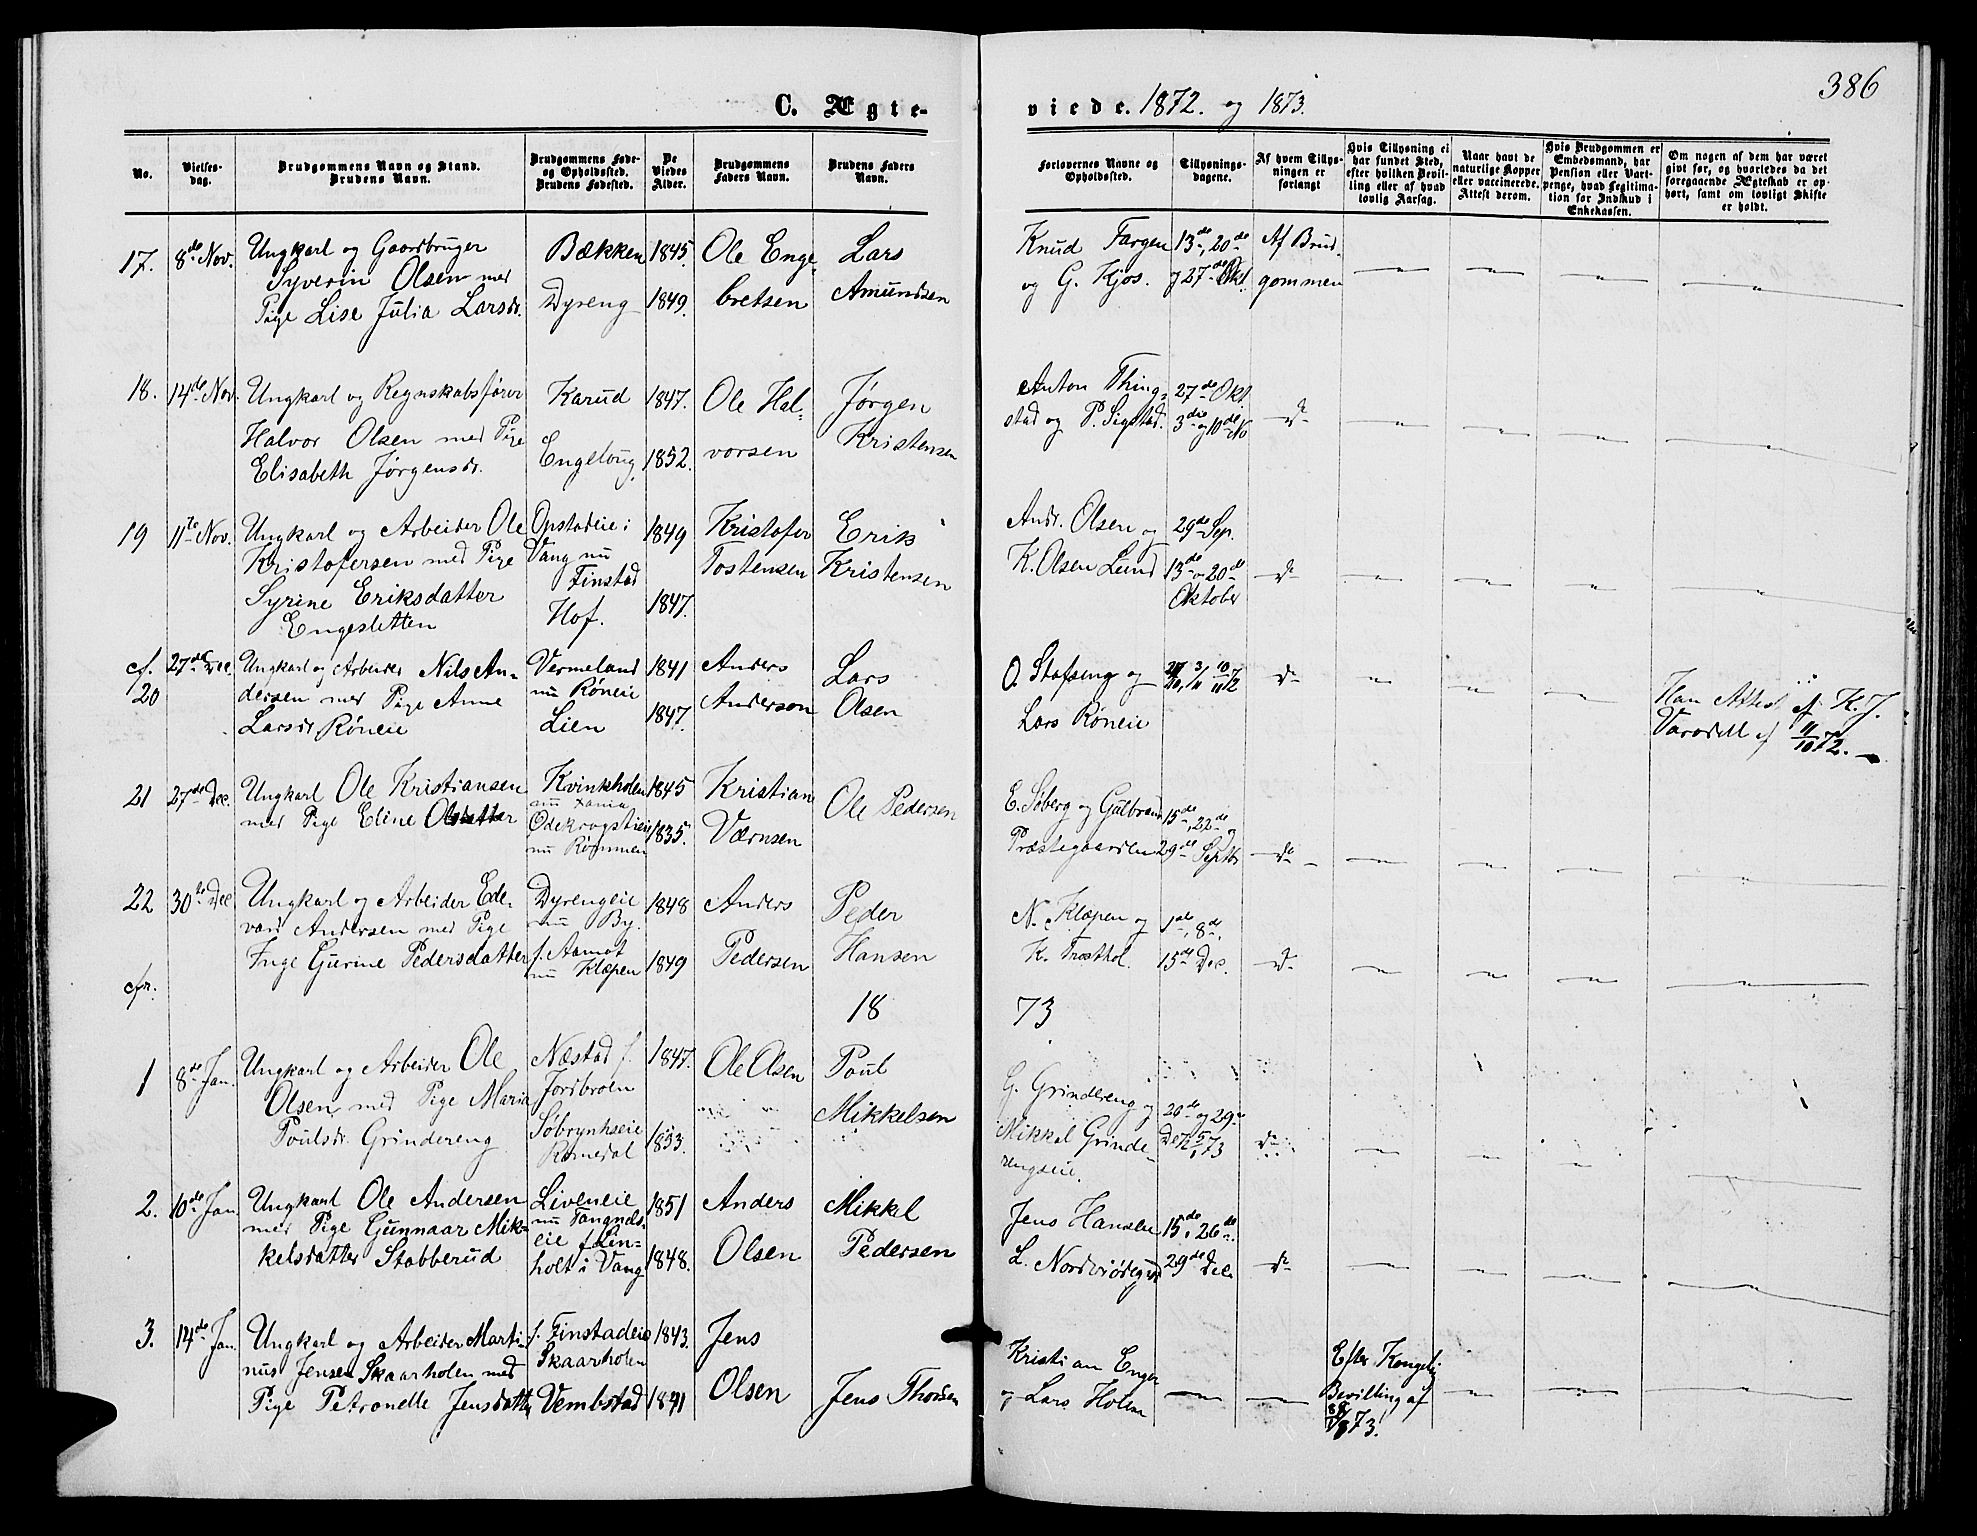 386
C. Ægte-
viede. 1872. og 1873.
No.
Vielses-
dag.
Brudgommens Navn og Stand.
Brudens Navn.
Brudgommens Føde-
og Opholdssted.
Brudens Fødested.
De
Viedes
Alder.
Brudgommens
Faders Navn.
Brudens Faders
Navn.
Forlovernes Navne og
Opholdssted.
Tillysnings-
dagene.
Af hvem Tillys-
ningen er
forlangt
Hvis Tillysning ei
har fundet Sted,
efter hvilken Bevil-
ling eller af hvad
lovlig Aarsag.
Naar havt de
naturlige Kopper
eller vaccinerede.
Attest derom.
Hvis Brudgommen er
Embedsmand, har
Pension eller Vart-
penge, hvad Legitima-
tion for Indskud i
Enkekassen.
Om nogen af dem har været
gift før, og hvorledes da det
foregaaende Ægteskab er op-
hørt, samt om lovligt Skifte
er holdt.
17. 8de Nov.
Ungkarl og Gaardbruger
Syverin Olsen med
Pige Lise Julia Larsdr.
Bækken
Dyreng
1845.
1849.
Ole Enge-
bretsen
Lars
Amundsen
Knud Fargen
og G. Kjos.
13de, 20de
og 27de Okt.
Af Brud-
gommen
18. 14de Nov.
Ungkarl og Regnskabsfører
Halvor Olsen med Pige
Elisabeth Jørgensdr.
Karud
Engeloug
1847.
1852.
Ole Hal-
vorsen
Jørgen
Kristensen
Anton Thing-
stad og P. Sigstad.
27de Okt.
3die og 10de No
do
19 11te Nov.
Ungkarl og Arbeider Ole
Kristofersen med Pige
Syrine Eriksdatter
Engesletten
Opstadeie i
Vang nu
Finstad
Hof.
1849
1847.
Kristofer
Tostensen
Erik
Kristensen
Andr. Olsen og
K. Olsen Lund
29de Sep.
13de 20de
Oktober
do
cf.
20
27de Dec.
Ungkarl og Arbeider Nils An-
dersen med Pige Anne
Larsdr Røneie
Vermeland
nu Røneie
Lien
1841
1847.
Anders
Anderson
Lars
Olsen
O. Stafseng og
Lars Røneie
27/10, 3/11 10/11 72
do
Han Attest af K. J.
af 11/10 72.
21 27de Dec.
Ungkarl Ole Kristiansen
med Pige Eline Olsdatter
Kvinkholen
nu Xania
Odekragstien
nu Rommen
1845
1835.
Kristian
Værnsen
Ole Pedersen
E. Søberg og Gulbrand
Præstegaarden
15de, 22de og
29de Septbr
do
22 30te Dec
cfr.
Ungkarl og Arbeider Ede-
vard Andersen med Pige
Inge Gurine Pedersdatter
Dyrengeie
nu By.
f. Aamot
nu Klæpen
1848
1849
Anders
Pedersen
Peder
Hansen
N. Klæpen og
K. Trosthol.
1ste, 8de,
15de Dec.
do
18 73
1 8de Jan.
Ungkarl og Arbeider Ole
Olsen, med Pige Maria
Poulsdr. Grindereng
Næstad f.
Jordbroen
Søbrynkseie
Romedal
1847.
1853.
Ole Olsen
Poul
Mikkelsen
G. Grindereng og
Mikkel Grinde-
rengseie.
26de og 29de
De 72 5/1 73
do
2. 10de Jan
Ungkarl Ole Andersen
med Pige Gunnaar Mik-
kelsdatter Stabberud
Liveneie
nu Tangnes-
eie f. Lin-
holt i Vang
1851
1848.
Anders
Olsen
Mikkel
Pedersen
Jens Hansen
15de 26de
29de Dec.
do
3. 14de Jan.
Ungkarl og Arbeider Marti-
nus Jensen Skaarholen med
Pige Petronelle Jensdatter
f. Finstadeie
Skaarholen
Vembstad
1843.
1841
Jens
Olsen
Jens Thorsen
Kristian Enger
og Lars Holen
Efter Kongelig
Bevilling af
73.